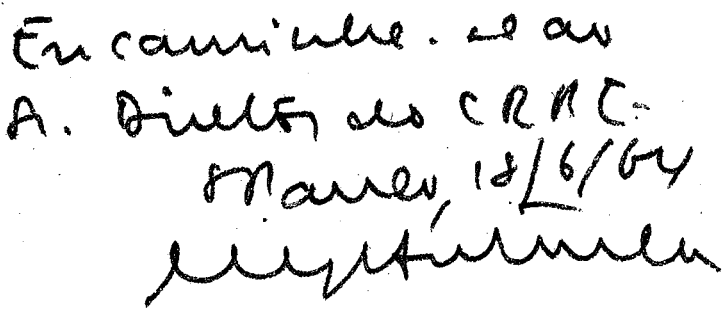 Encaminhe-se ao
A. Diretor do CRPC-
SPaulo, 18/6/64